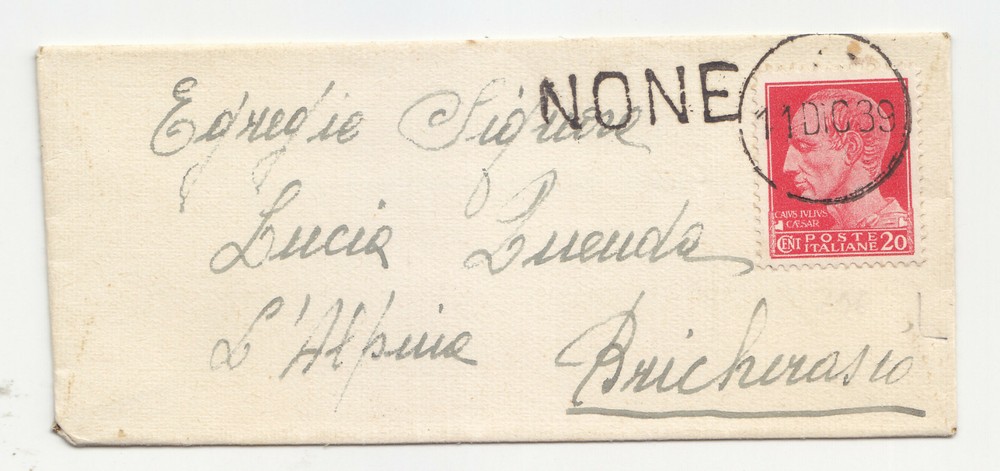 NONE
11 DIC 39
Egregie Signore
Lucia
L'Alpina
Bricherasio
CAIVS IVLIVS
CÆSAR
CENT POSTE ITALIANE 20